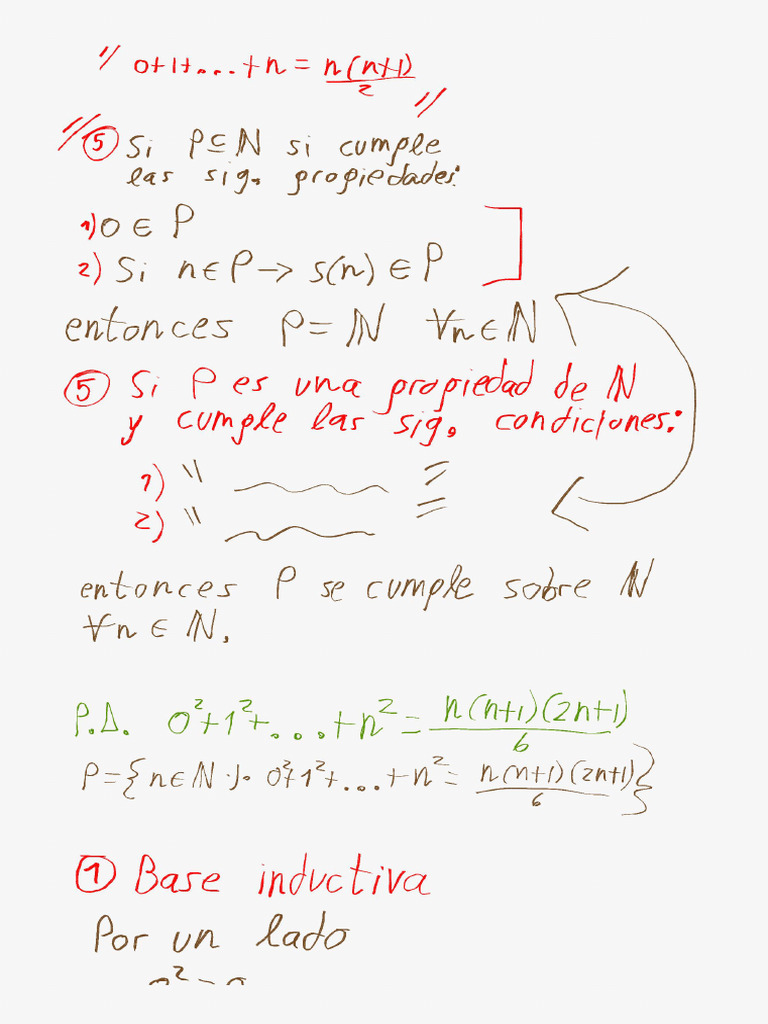 " 0+1+...+n = n(n+1)/2 "
" ⑤ Si P⊆ℕ si cumple
las sig. propiedades:
1) 0 ∈ P
2) Si n∈P → s(n) ∈ P
entonces P=ℕ ∀n∈ℕ
⑤ Si P es una propiedad de ℕ
y cumple las sig. condiciones:
1) " "
2) " "
entonces P se cumple sobre ℕ
∀n∈ℕ.
P.D. 0²+1²+...+n² = n(n+1)(2n+1)/6
P={n∈ℕ ·)· 0²+1²+...+n² = n(n+1)(2n+1)/6}
① Base inductiva
Por un lado